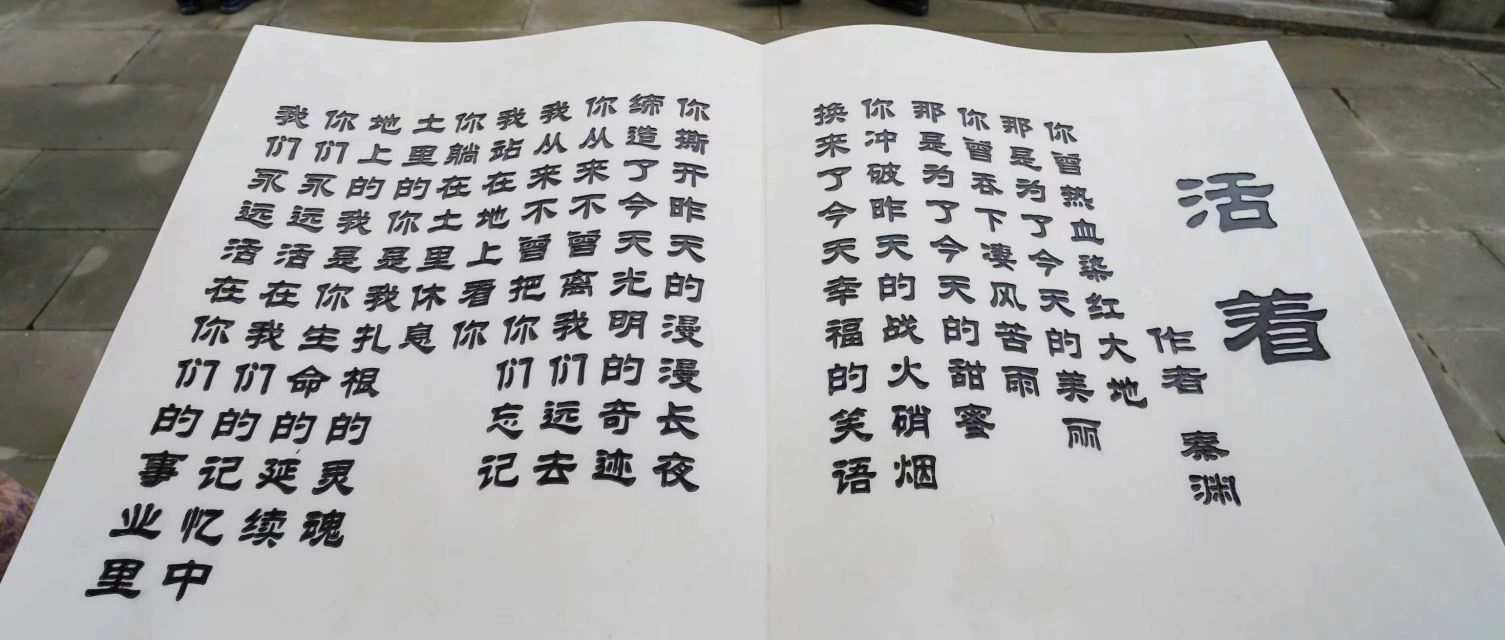 活着
作者 秦渊
你曾热血染红大地
那是为了今天的美丽
你曾吞下凄风苦雨
那是为了今天的甜蜜
你冲破昨天的战火硝烟
换来了今天幸福的笑语
你撕开昨天的漫漫长夜
缔造了今天光明的奇迹
你从来不曾离我们远去
我从来不曾把你们忘记
我站在地上看你
你躺在土里休息
土里的你是我扎根的灵魂
地上的我是你生命的延续
你们永远活在我们的记忆中
我们永远活在你们的事业里